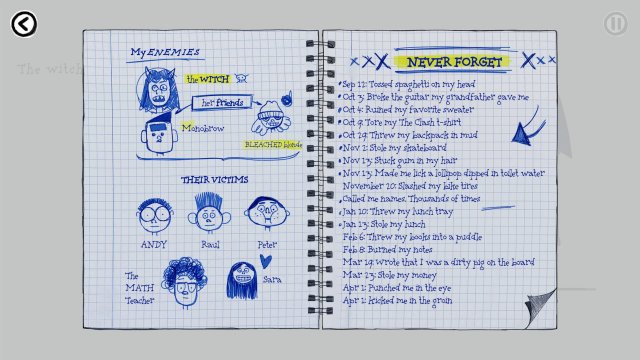 The witch
My ENEMIES
the WITCH
her friends
Monobrow
BLEACHED blonde
THEIR VICTIMS
ANDY
Raul
Peter
The MATH Teacher
Sara
xxX NEVER FORGET Xxx
Sep 12: Tossed spaghetti on my head
Oct 3: Broke the guitar my grandfather gave me
Oct 4: Ruined my favorite sweater
Oct 9: Tore my The Clash t-shirt
Oct 29: Threw my backpack in mud
Nov 2: Stole my skateboard
Nov 13: Stuck gum in my hair
Nov 13: Made me lick a lollipop dipped in toilet water
November 20: Slashed my bike tires
Called me names. Thousands of times
Jan 10: Threw my lunch tray
Jan 23: Stole my lunch
Feb 6: Threw my books into a puddle
Feb 8: Burned my notes
Mar 19: Wrote that I was a dirty pig on the board
Mar 23: Stole my money
Apr 1: Punched me in the eye
Apr 1: kicked me in the groin